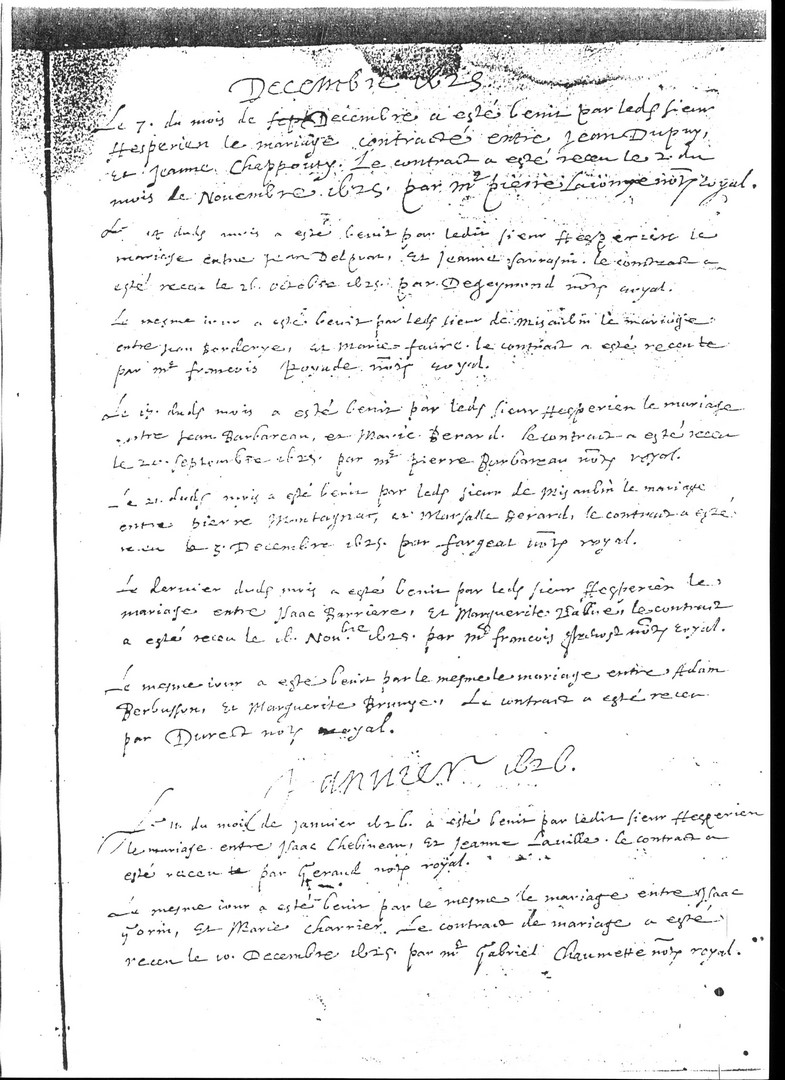 Decembre 1625
Le 7. du mois de Decembre a esté benit par leds sieur
Hesperien le mariage contracté entre Jean Dupuy,
Et Jeanne Chappouty. Le contract a esté receu le 2. du
mois de Novembre 1625. par mr pierre notr royal.
Le duds mois a esté benit par ledit sieur Hesperien le
mariage entre Jean Delpuau, Et Jeanne Sarrasin. le contract a
esté receu le 26. octobre 1625. par Degeymond notr royal.
Le mesme iour a esté benit par leds sieur de Misaubin le mariage
entre Jean Borderye, Et Marie faure. le contract a esté receu
par mr francois notr royal.
Le duds mois a esté benit par leds sieur Hesperien le mariage
entre Jean Barbareau, et Marie Berard. le contract a esté receu
le septembre 1625. par mr pierre Barbareau notr royal.
Le 21. duds mois a esté benit par leds sieur de Misaubin le mariage
entre pierre Montagnac, et Marsalle Berard, le contract a esté
receu le 3. Decembre 1625. par fargeat notr royal.
Le dernier duds mois a esté benit par leds sieur Hesperien le
mariage entre Isaac Barriere, Et Marguerite le contract
a esté receu le 16. Novbre 1625. par mr francois notr royal.
Le mesme iour a esté benit par le mesme le mariage entre Adam
Berbusson, Et Marguerite Brunye, Le contract a esté receu
par Durect notr royal.
Janvier 1626.
Le 11. du mois de Janvier 1626. a esté benit par ledit sieur Hesperien
le mariage entre Isaac Chebineau, Et Jeanne Laville. le contract a
esté receu par Geraud notr royal.
Le mesme iour a esté benit par le mesme le mariage entre Isaac
Gorin, Et Marie Charrier. Le contract de mariage a esté
receu le 10. Decembre 1625. par mr Gabriel Chaumette notr royal.